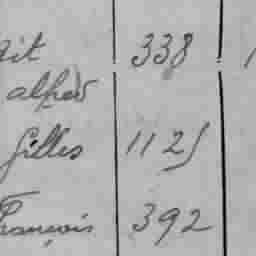 ait 338
alfred
Gilles 1125
François 392